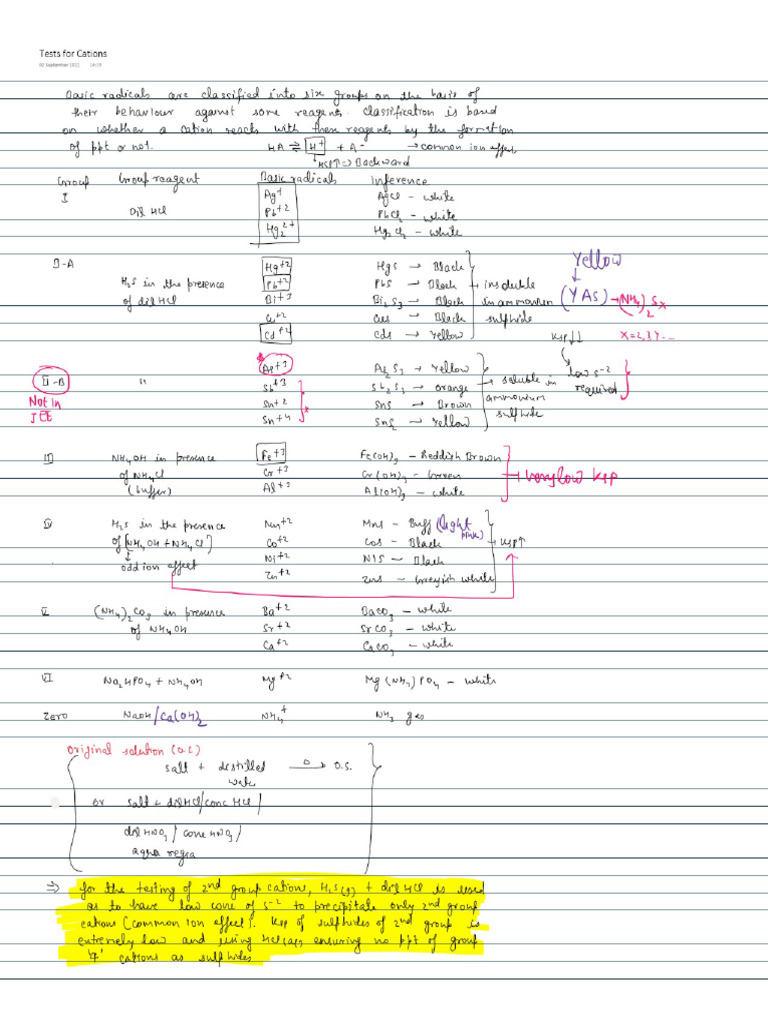 Tests for Cations
02 September 2022 14:19
Basic radicals are classified into six groups on the basis of
their behaviour against some reagent. classification is based
on whether a cation reacts with these reagents by the formation
of ppt or not. HA ⇌ H⁺ + A⁻ → common ion effect
Backward
Group Group reagent Basic radicals Inference
I Dil HCl Ag⁺ AgCl - white
Pb⁺² PbCl₂ - white
Hg₂²⁺ Hg₂Cl₂ - white
II-A H₂S in the presence of dil HCl Hg⁺² HgS → Black
Pb⁺² PbS → Black
Bi⁺³ Bi₂S₃ → Black
Cu⁺² CuS → Black
Cd⁺² CdS → Yellow
insoluble in ammonium sulphide
Yellow
(YAs) → (NH₄)₂Sx
x=2,3,4...
Ksp↓↓
low S⁻² required
II-B " As⁺³ As₂S₃ → Yellow
Not in JEE
Sb⁺³ Sb₂S₃ → orange
Sn⁺² SnS → Brown
Sn⁺⁴ SnS₂ → Yellow
x
soluble in ammonium sulphide
III NH₄OH in presence of NH₄Cl (buffer) Fe⁺³ Fe(OH)₃ - Reddish Brown
Cr⁺³ Cr(OH)₃ - Green
Al⁺³ Al(OH)₃ - white
→ very low Ksp
IV H₂S in the presence of [NH₄OH + NH₄Cl] Mn⁺² MnS - Buff (light pink)
Co⁺² CoS - Black
Ni⁺² NiS - Black
Zn⁺² ZnS - Greyish white
→ Ksp↑
odd ion effect
V (NH₄)₂CO₃ in presence of NH₄OH Ba⁺² BaCO₃ - white
Sr⁺² SrCO₃ - white
Ca⁺² CaCO₃ - white
VI Na₂HPO₄ + NH₄OH Mg⁺² Mg(NH₄)PO₄ - white
Zero NaOH/Ca(OH)₂ NH₄⁺ NH₃ gas
Original solution (O.S)
salt + distilled water → O.S.
or salt + dil HCl/conc HCl/
dil HNO₃/conc HNO₃/
aqua regia
⇒ for the testing of 2nd group cations, H₂S(g) + dil HCl is used
as to have low conc of S⁻² to precipitate only 2nd group
cations (common ion effect). Ksp of sulphides of 2nd group is
extremely low and using HCl(aq) ensuring no ppt of group
'4' cations as sulphides